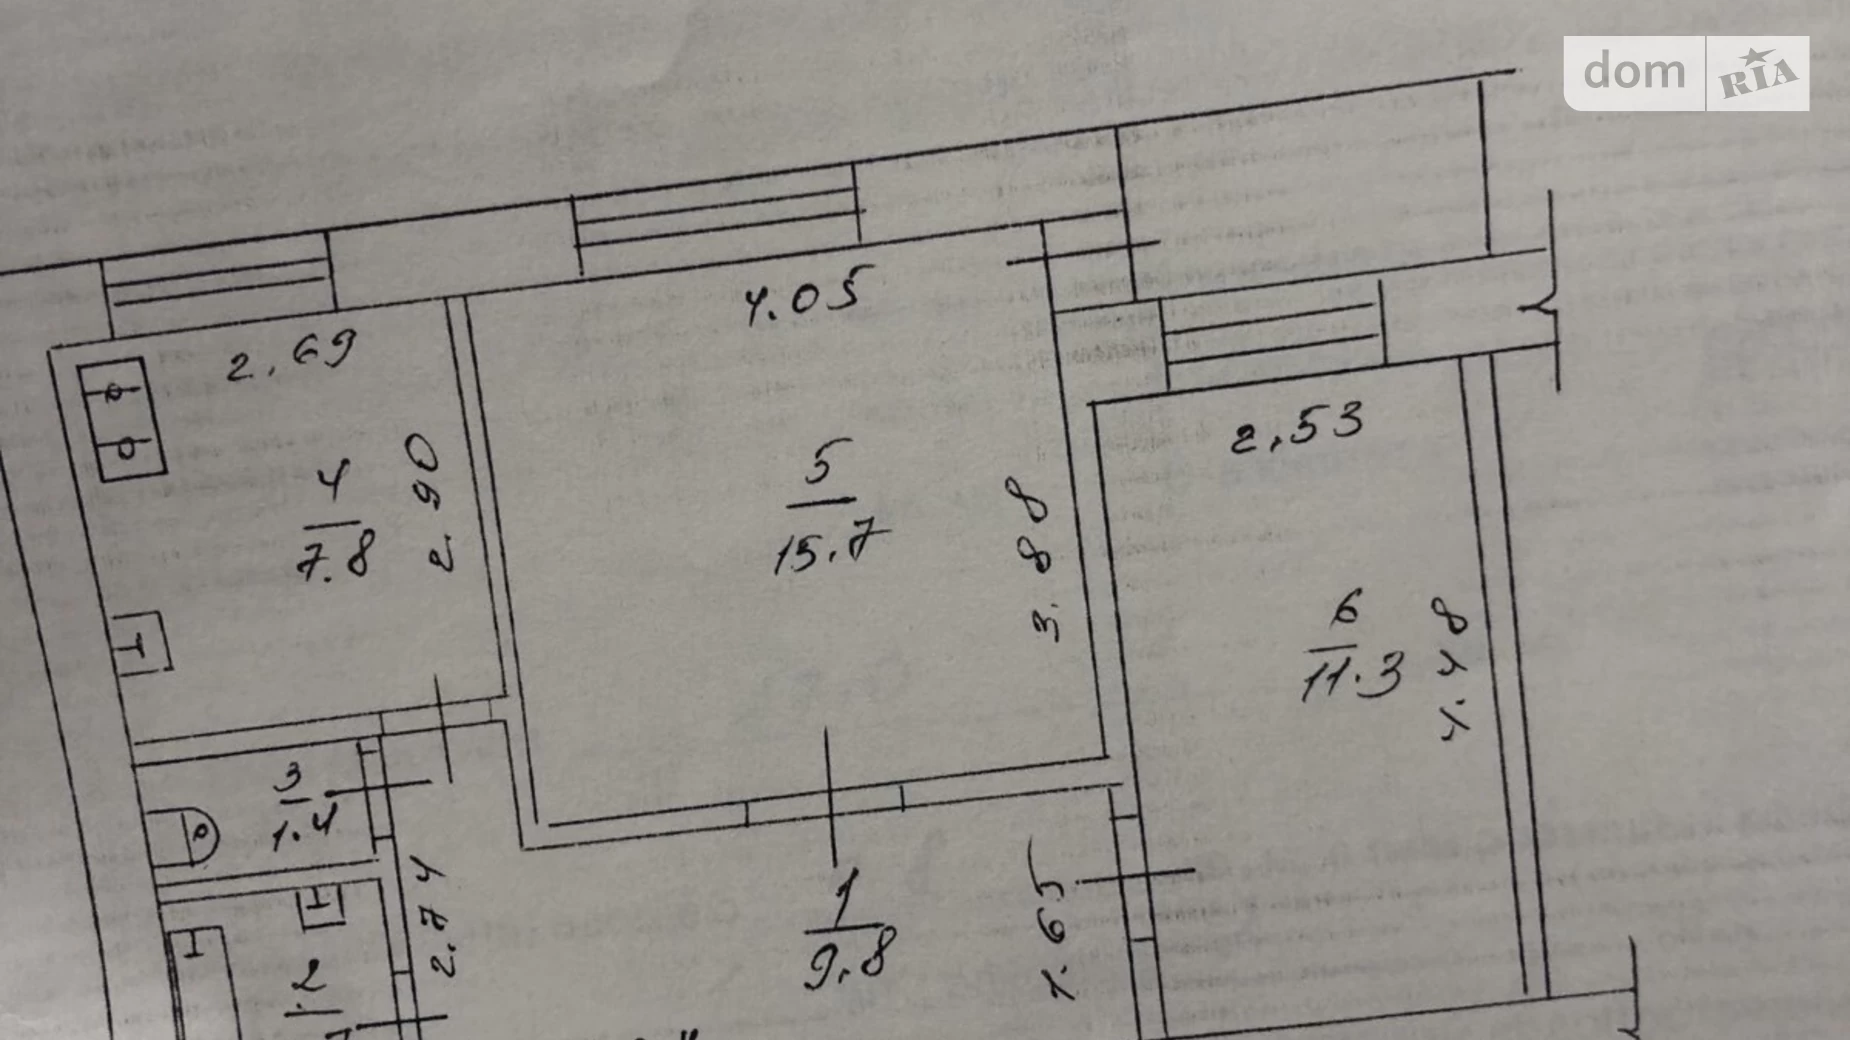 dom RIA
2.69
4.05
2.53
4
7.8
2.90
5
15.7
3.88
6
11.3
4.48
3
1.4
2.74
1
9.8
1.65
2